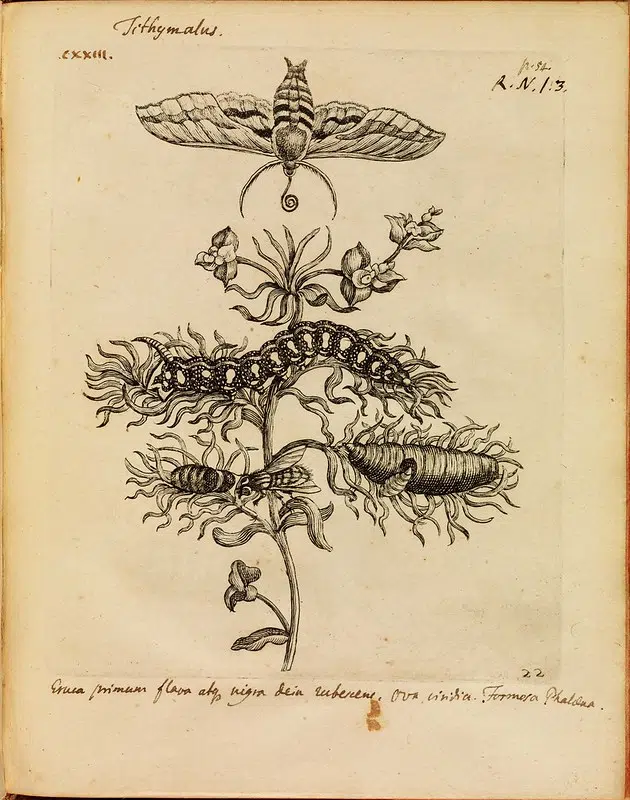 Tithymalus.
CXXIII.
p. 52
R. N. 1:3.
22
Eruca primum flava atq nigra dein rubescens. Ova viridia. Formosa Phalæna.